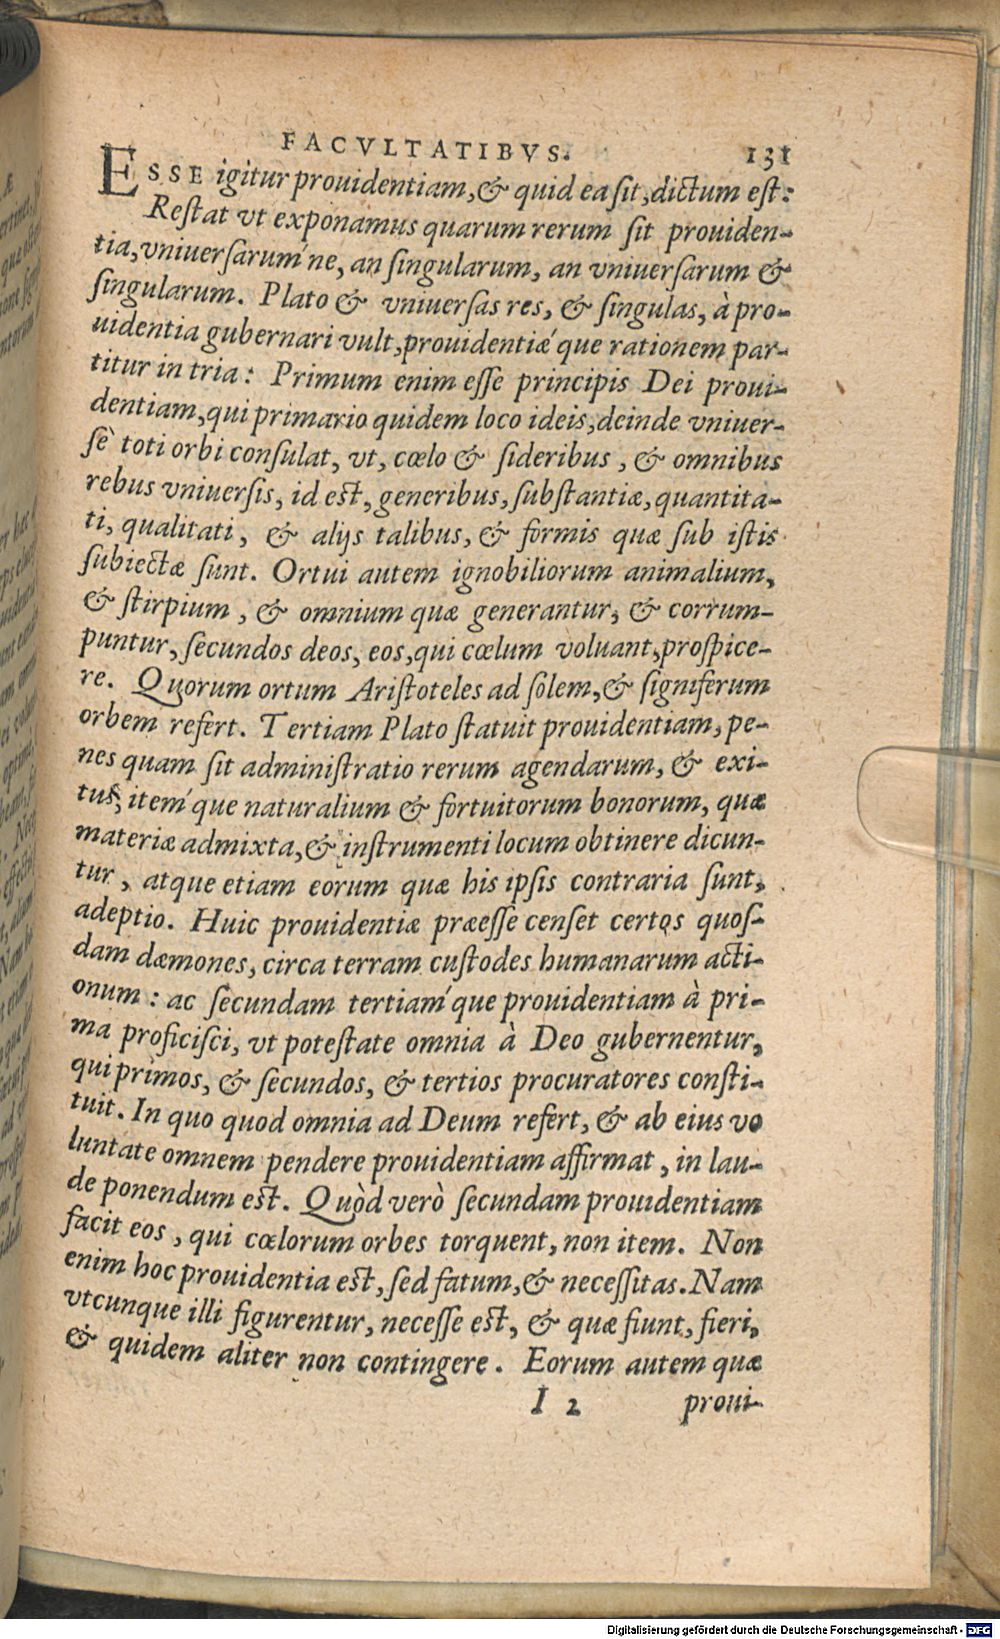 FACVLTATIBVS. 131
ESSE igitur prouidentiam, & quid ea sit, dictum est:
Restat vt exponamus quarum rerum sit prouiden-
tia, vniuersarum´ne, an singularum, an vniuersarum &
singularum. Plato & vniuersas res, & singulas, à pro-
uidentia gubernari vult, prouidentiæ´que rationem par-
titur in tria: Primum enim esse principis Dei proui-
dentiam, qui primario quidem loco ideis, deinde vniuer-
sè toti orbi consulat, vt, cœlo & sideribus, & omnibus
rebus vniuersis, id est, generibus, substantiæ, quantita-
ti, qualitati, & alijs talibus, & formis quæ sub istis
subiectæ sunt. Ortui autem ignobiliorum animalium,
& stirpium, & omnium quæ generantur, & corrum-
puntur, secundos deos, eos, qui cœlum voluant, prospice-
re. Quorum ortum Aristoteles ad solem, & signiferum
orbem refert. Tertiam Plato statuit prouidentiam, pe-
nes quam sit administratio rerum agendarum, & exi-
tus, item´que naturalium & fortuitorum bonorum, quæ
materiæ admixta, & instrumenti locum obtinere dicun-
tur, atque etiam eorum quæ his ipsis contraria sunt,
adeptio. Huic prouidentiæ præesse censet certos quos-
dam dæmones, circa terram custodes humanarum acti-
onum: ac secundam tertiam´que prouidentiam à pri-
ma proficisci, vt potestate omnia à Deo gubernentur,
qui primos, & secundos, & tertios procuratores consti-
tuit. In quo quod omnia ad Deum refert, & ab eius vo
luntate omnem pendere prouidentiam affirmat, in lau-
de ponendum est. Quòd verò secundam prouidentiam
facit eos, qui cœlorum orbes torquent, non item. Non
enim hoc prouidentia est, sed fatum, & necessitas. Nam
vtcunque illi figurentur, necesse est, & quæ fiunt, fieri,
& quidem aliter non contingere. Eorum autem quæ
I 2 proui-
Digitalisierung gefördert durch die Deutsche Forschungsgemeinschaft - DFG